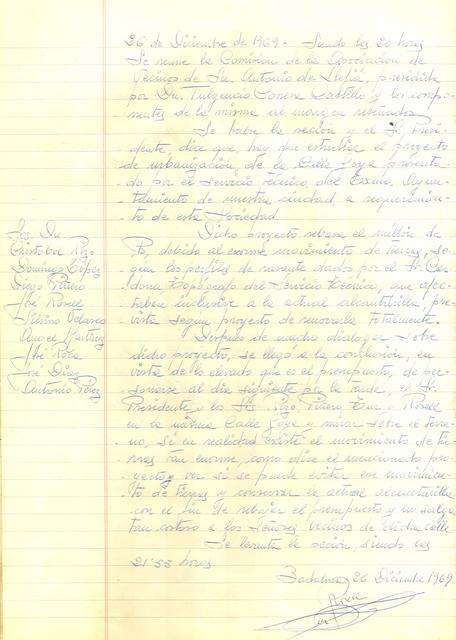 26 de Diciembre de 1969 - Siendo las 20 horas
Se reune la Comision de la Asociacion de
Vecinos de Sn. Antonio de Llefiá, presidida
por Dn. Fulgencio Conesa Castillo y los compo-
nentes de la misma al margen reseñados
Se habre la seción y el Sr. Presi-
dente, dice que hay que estudiar el proyecto
de urbanización de la Calle Goya presenta-
do por el Servicio Técnico, del Exmo, Ayun-
tamiento de nuestra ciudad, a requerimien-
to de esta Sociedad.
Dicho proyecto rebasa el millón de
Pts, debido al enorme movimiento de tierras, se-
gun los perfiles de rasante dados por el Sr. Car-
dona Topógrafo del Servicio Técnico, que afec-
taban inclusive a la actual alcantarilla, pre-
vista según proyecto de renovarla totalmente.
Después de mucho dialogar sobre
dicho proyecto, se llegó a la conclusión, en
vista de lo elevado que es el presupuesto, de per-
sonarse al dia siguiente por la tarde, el Sr.
Presidente y los Srs. Rizo, Piñero, y Rosell
en la misma Calle Goya y mirar sobre el terre-
no, si en realidad existe el movimiento de tie-
rras tan enorme, como dice el mencionado pro-
yecto y ver si se puede evitar ese movimien-
to de tierras y conservar la actual alcantarilla
con el fin de rebajar el presupuesto y no salga
tan costoso a los Señores vecinos de dicha calle
Se levanta la seción, siendo las
21:55 horas.
Badalona 26 Diciembre 1969
Rosell
Srs. Dn.
Cristobal Rizo
Domingo López
Diego Piñero
José Rosell
Silvino Velasco
Angel Martinez
José Roca
José Diaz
Antonio Pérez